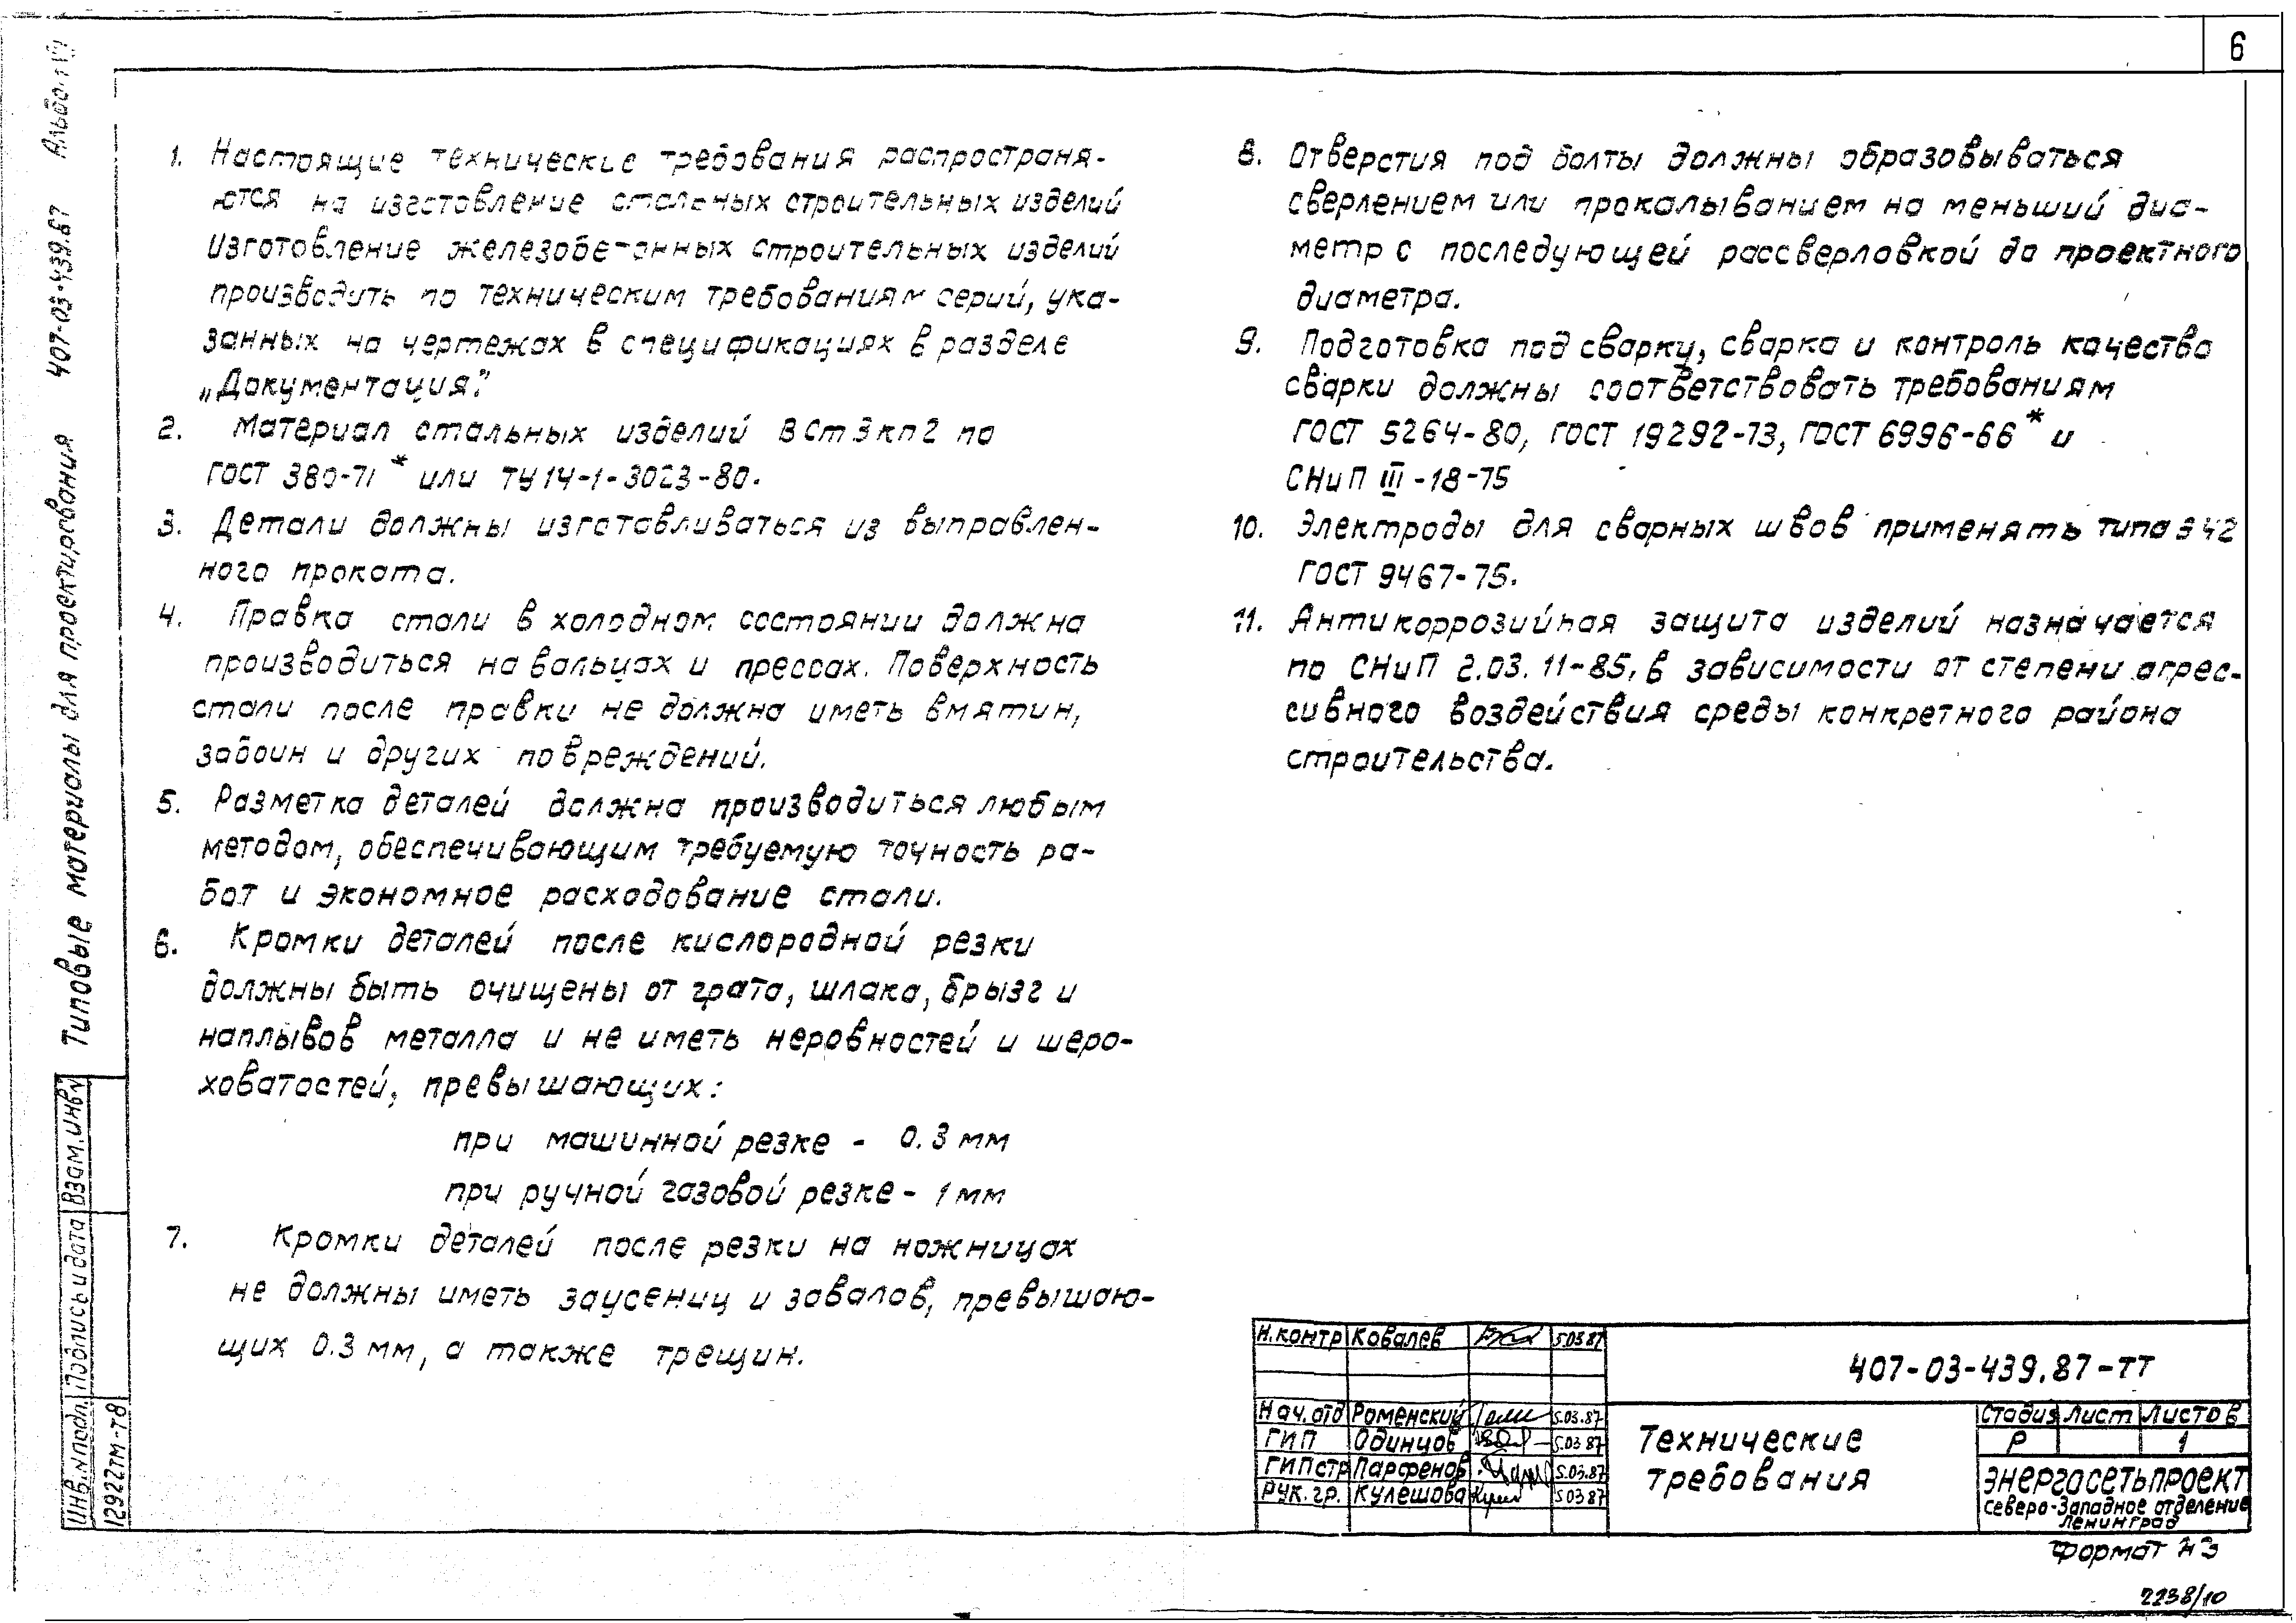 6
Альбом
407-03-439.87
Типовые материалы для проектирования
1. Настоящие технические требования распространя-
ются на изготовление стальных строительных изделий
Изготовление железобетонных строительных изделий
производить по техническим требованиям серий, ука-
занных на чертежах в спецификациях в разделе
„Документация".
2. Материал стальных изделий ВСт3кп2 по
ГОСТ 380-71* или ТУ14-1-3023-80.
3. Детали должны изготавливаться из выправлен-
ного проката.
4. Правка стали в холодном состоянии должна
производиться на вальцах и прессах. Поверхность
стали после правки не должна иметь вмятин,
забоин и других повреждений.
5. Разметка деталей должна производиться любым
методом, обеспечивающим требуемую точность ра-
бот и экономное расходование стали.
6. Кромки деталей после кислородной резки
должны быть очищены от грата, шлака, брызг и
наплывов металла и не иметь неровностей и шеро-
ховатостей, превышающих:
при машинной резке - 0.3 мм
при ручной газовой резке - 1 мм
7. Кромки деталей после резки на ножницах
не должны иметь заусениц и завалов, превышаю-
щих 0.3 мм, а также трещин.
8. Отверстия под болты должны образовываться
сверлением или прокалыванием на меньший диа-
метр с последующей рассверловкой до проектного
диаметра.
9. Подготовка под сварку, сварка и контроль качества
сварки должны соответствовать требованиям
ГОСТ 5264-80, ГОСТ 19292-73, ГОСТ 6996-66* и
СНиП III-18-75
10. Электроды для сварных швов применять типа Э42
ГОСТ 9467-75.
11. Антикоррозийная защита изделий назначается
по СНиП 2.03.11-85, в зависимости от степени агрес-
сивного воздействия среды конкретного района
строительства.
Взам.инв.№
Подпись и дата
Инв.№подл.
12922тм-т8
Н.контр Ковалев 5.03.87
Нач.отд Роменский 5.03.87
ГИП Одинцов 5.03.87
ГИПстр Парфенов 5.03.87
Рук.гр. Кулешова 5.03.87
407-03-439.87-ТТ
Технические
требования
Стадия Лист Листов
Р 1
ЭНЕРГОСЕТЬПРОЕКТ
Северо-Западное отделение
Ленинград
Формат А3
2238/10